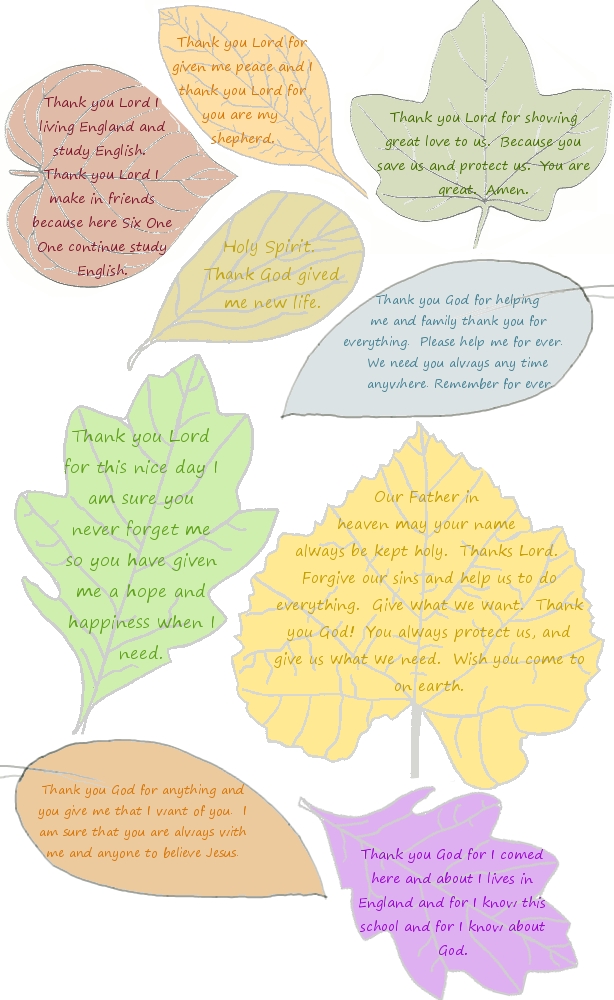 Thank you Lord for
given me peace and I
thank you Lord for
you are my
shepherd.
Thank you Lord I
living England and
study English.
Thank you Lord I
make in friends
because here Six One
One continue study
English.
Thank you Lord for showing
great love to us.  Because you
save us and protect us.  You are
great.  Amen.
Holy Spirit.
Thank God gived
me new life.
Thank you God for helping
me and family thank you for
everything.  Please help me for ever.
We need you always any time
anywhere. Remember for ever
Thank you Lord
for this nice day I
am sure you
never forget me
so you have given
me a hope and
happiness when I
need.
Our Father in
heaven may your name
always be kept holy.  Thanks Lord.
Forgive our sins and help us to do
everything.  Give what we want.  Thank
you God!  You always protect us, and
give us what we need.  Wish you come to
on earth.
Thank you God for anything and
you give me that I want of you.  I
am sure that you are always with
me and anyone to believe Jesus.
Thank you God for I comed
here and about I lives in
England and for I know this
school and for I know about
God.